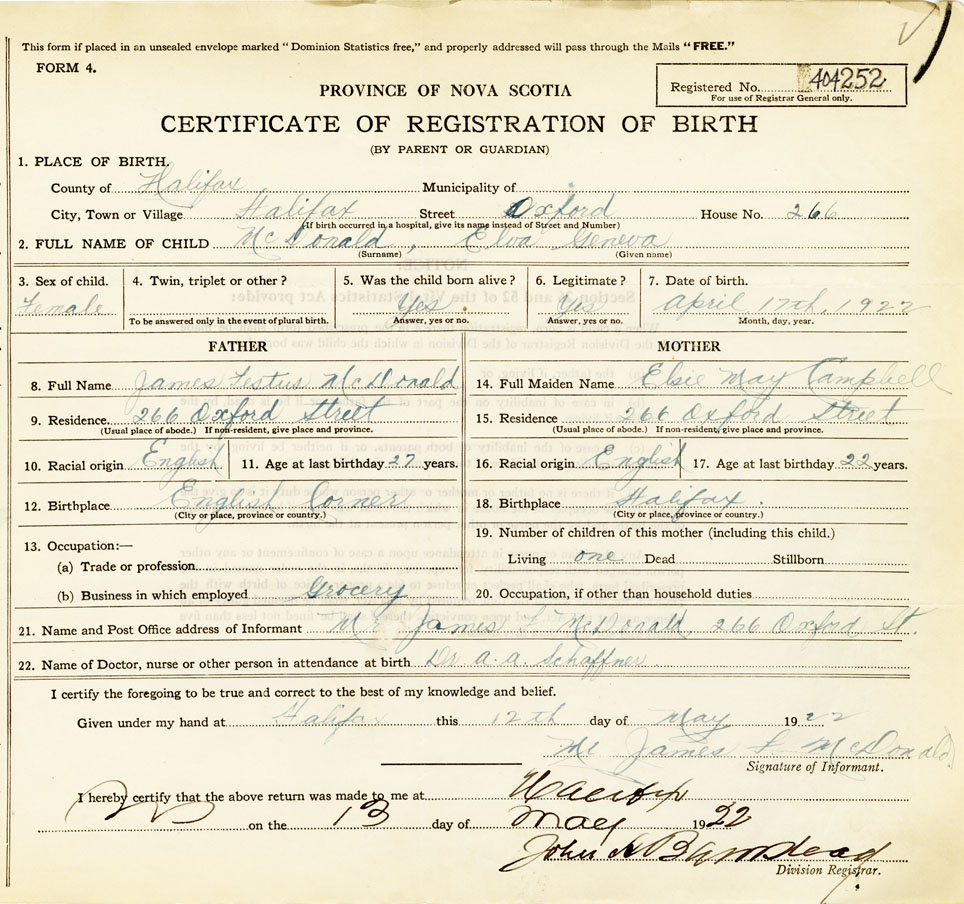 This form if placed in an unsealed envelope marked "Dominion Statistics free," and properly addressed will pass through the Mails "FREE."
FORM 4.
Registered No. 404252
For use of Registrar General only.
PROVINCE OF NOVA SCOTIA
CERTIFICATE OF REGISTRATION OF BIRTH
(BY PARENT OR GUARDIAN)
1. PLACE OF BIRTH.
County of Halifax Municipality of
City, Town or Village Halifax Street Oxford House No. 266
(If birth occurred in a hospital, give its name instead of Street and Number)
2. FULL NAME OF CHILD McDonald, Elva Geneva
(Surname) (Given name)
3. Sex of child. 4. Twin, triplet or other? 5. Was the child born alive? 6. Legitimate? 7. Date of birth.
Female Yes Yes April 17th, 1922
To be answered only in the event of plural birth. Answer, yes or no. Answer, yes or no. Month, day, year.
FATHER MOTHER
8. Full Name James Festus McDonald 14. Full Maiden Name Elsie May Campbell
9. Residence. 266 Oxford Street 15. Residence 266 Oxford Street
(Usual place of abode.) If non-resident, give place and province. (Usual place of abode.) If non-resident, give place and province.
10. Racial origin English 11. Age at last birthday 27 years. 16. Racial origin English 17. Age at last birthday 22 years.
12. Birthplace English Corner 18. Birthplace Halifax
(City or place, province or country.) (City or place, province or country.)
13. Occupation:— 19. Number of children of this mother (including this child.)
(a) Trade or profession Living one Dead Stillborn
(b) Business in which employed Grocery 20. Occupation, if other than household duties
21. Name and Post Office address of Informant James F McDonald, 266 Oxford St.
22. Name of Doctor, nurse or other person in attendance at birth Dr. A. A. Schaffner
I certify the foregoing to be true and correct to the best of my knowledge and belief.
Given under my hand at Halifax this 12th day of May 1922
James F McDonald
Signature of Informant.
I hereby certify that the above return was made to me at Halifax
on the 13 day of May 1922
John
Division Registrar.